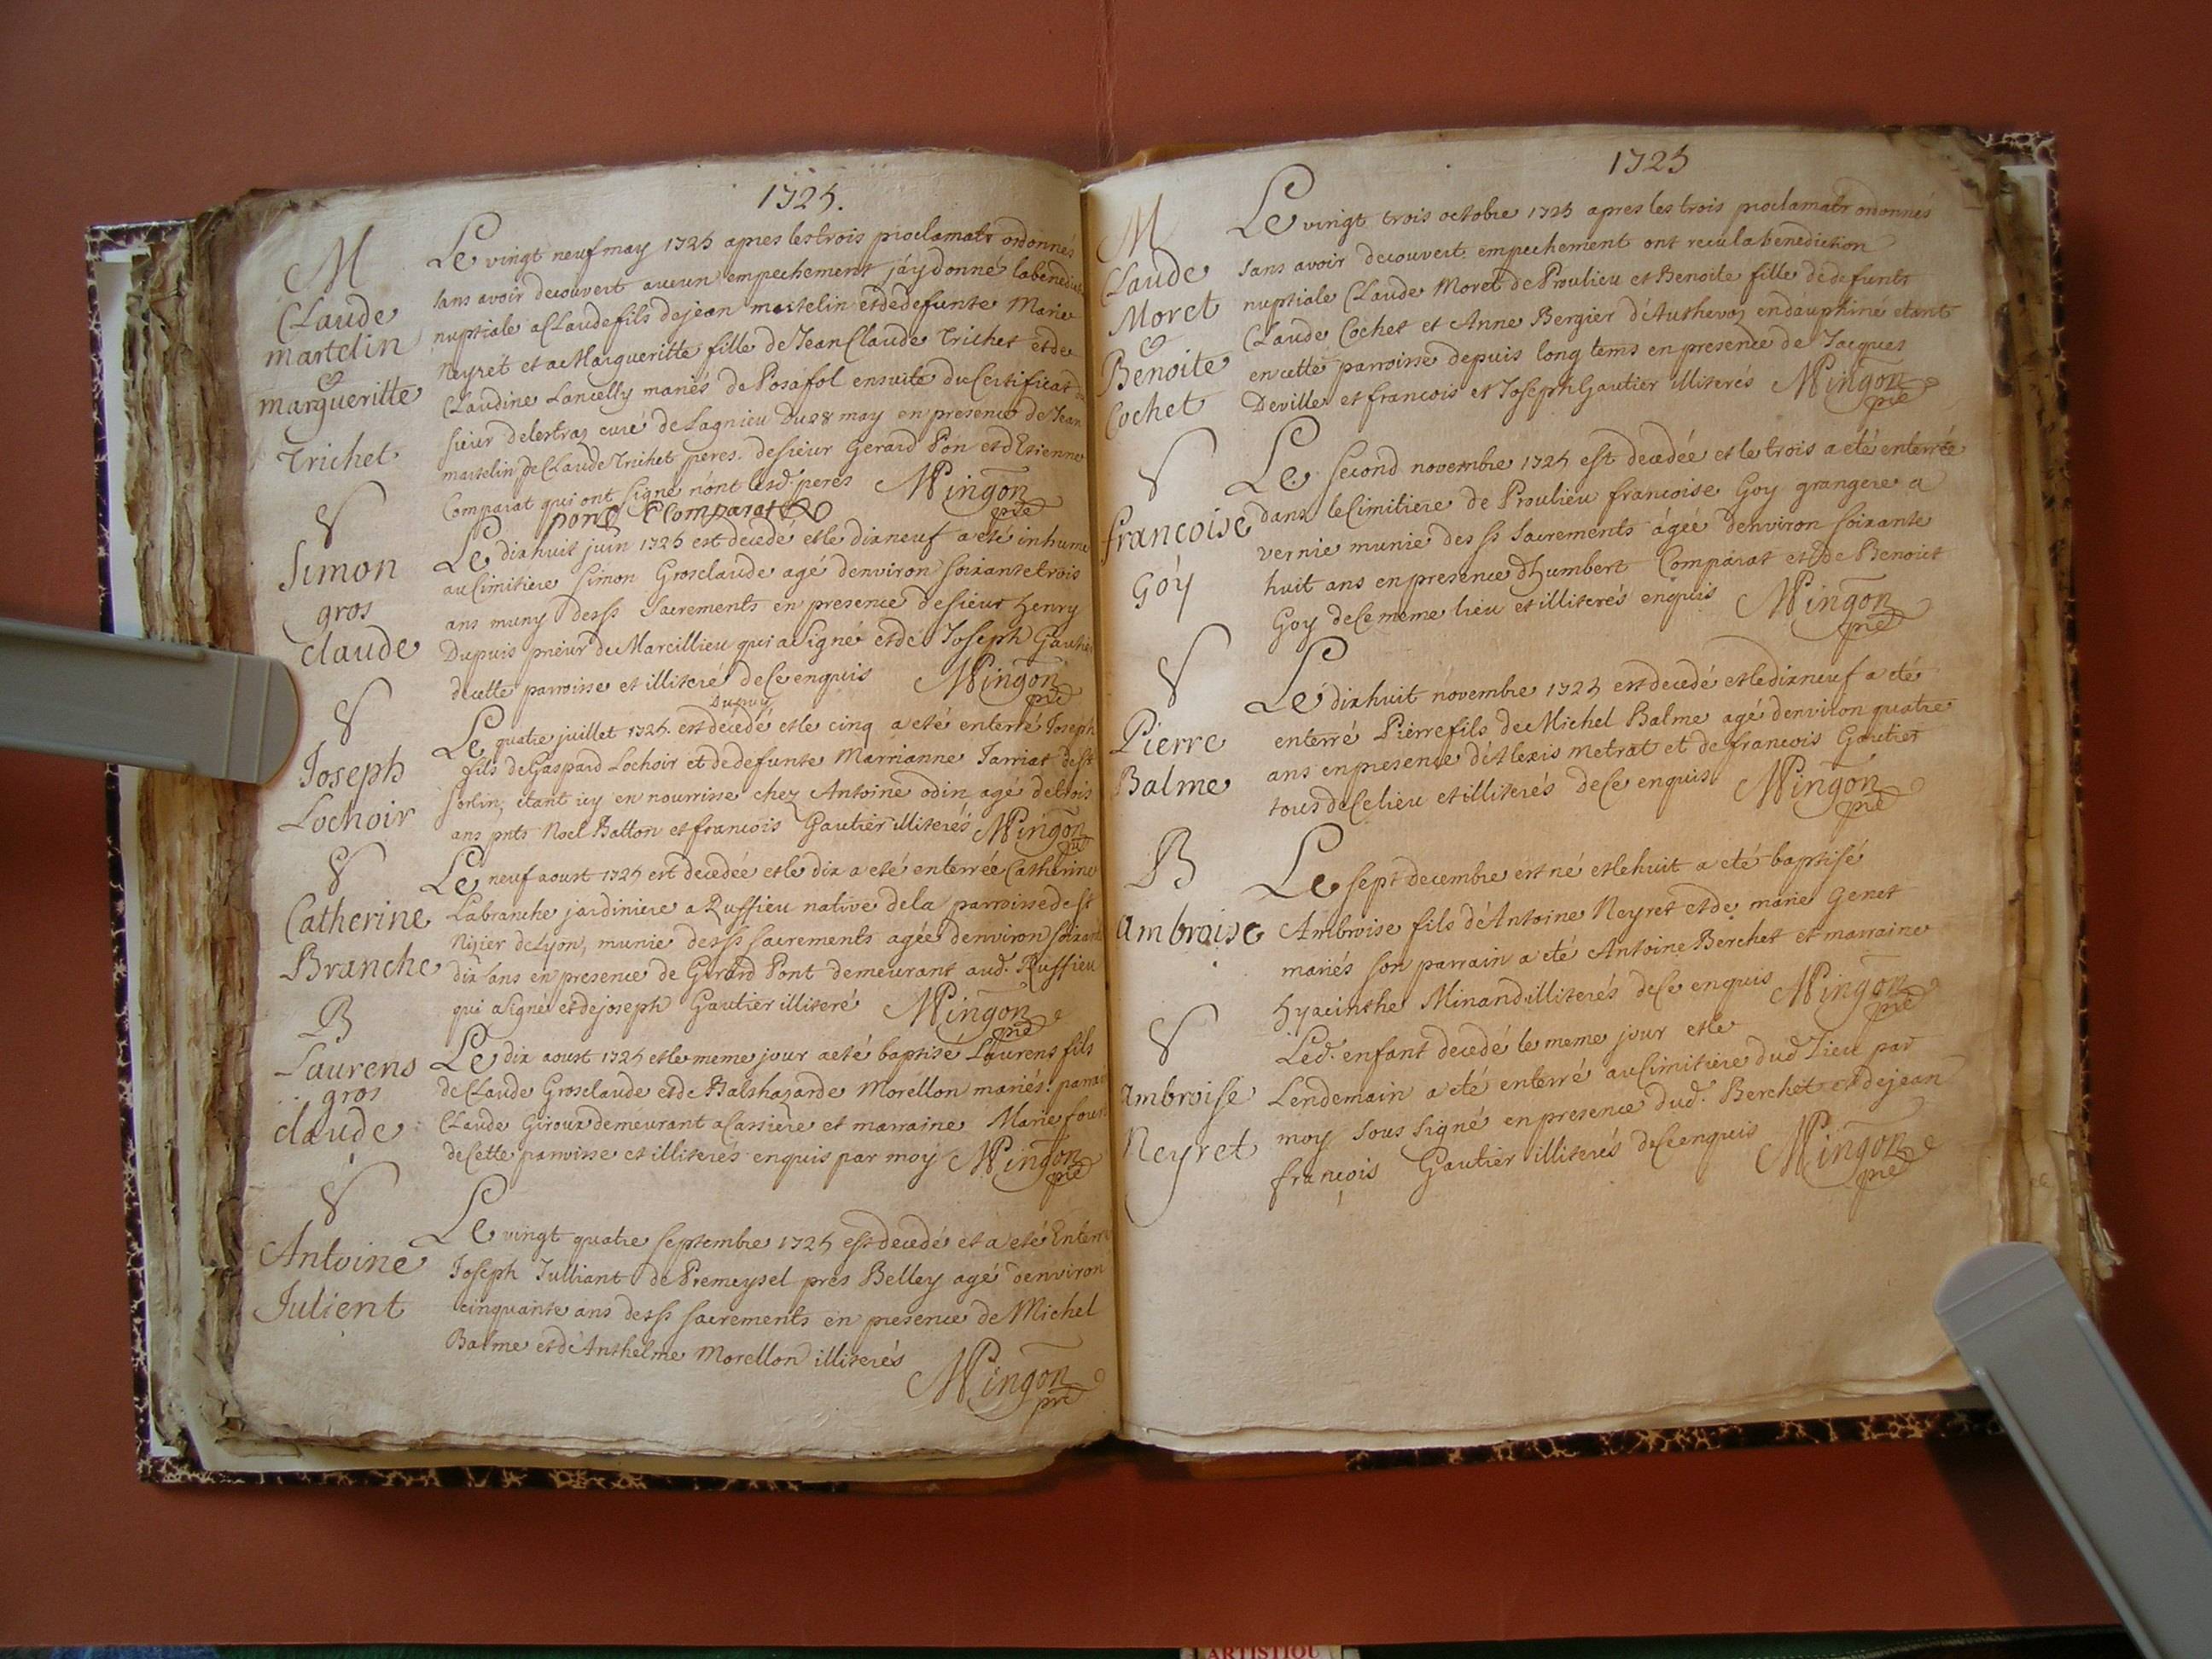 1725.
M
Claude
martelin
&
margueritte
Trichet
Le vingt neuf may 1725 apres les trois proclamatr ordonnés
sans avoir decouvert aucun empechement j'áy donné la benedict
nuptiale a Claude fils de jean martelin et de defunte Marie
Neyret et a Margueritte fille de Jean Claude Trichet et de
Claudine Lancelly mariés de Posafol ensuite du Certificat du
sieur delertraz curé de Lagnieu Du 28 may en presence de Jean
martelin de Claude Trichet peres. de sieur Gerard Pon et d'Etienne
Comparat qui ont signé nónt lesd. peres Mingon
pre
pong EComparat
Simon
gros
claude
Le dix huit juin 1725 est decedé et le dixneuf a eté inhume
au Cimitiere Simon Grosclaude agé denviron soixante trois
ans muny des ss Sacrements en presence de sieur henry
Dupuis prieur de Marcillieu qui a signé et de Joseph Gautier
de cette parroisse et illiteré de Ce enquis Mingon
Dupuis pre
Joseph
Lochoir
Le quatre juillet 1725 est décédé et le cinq a eté enterré Joseph
fils de Gaspard Lochoir et de defunte Marrianne Jarriat de st
sorlin, etant icy en nourrisse chez Antoine odin agé de trois
ans pnts Noel Batton et francois Gautier illiterés Mingon
pre
Catherine
Branche
Le neuf aoust 1725 est decedée et le dix a eté enterrée Catherine
Labranche jardiniere a Ruffieu native de la parroisse de st
Nizier de Lyon, munie des ss sacrements agée denviron soixante
dix ans en presence de Gerard Pont demeurant aud. Ruffieu
qui a signé et de joseph Gautier illiteré Mingon
pre
B
Laurens
gros
claude
Le dix aoust 1725 et le meme jour a eté baptisé Laurens fils
de Claude Grosclaude et de Balthazarde Morellon mariés. parrain
Claude Giroux demeurant a Carriere et marraine Marie four
de Cette parroisse et illiterés enquis par moy Mingon
pre
Antoine
Julient
Le vingt quatre septembre 1725 est decedé et a eté Enterré
Joseph Julliant de Premeysel pres Belley agé denviron
cinquante ans des ss sacrements en presence de Michel
Balme et d'Anthelme Morellon illiterés
Mingon
pre
1725
M
Claude
Moret
&
Benoite
Cochet
Le vingt trois octobre 1725 apres les trois proclamatr ordonnés
sans avoir decouvert empechement ont recu la benediction
nuptiale Claude Moret de Proulieu et Benoite fille de defunts
Claude Cochet et Anne Bergier d'Authevoz en dauphiné etant
en cette parroisse depuis long tems en presence de Jacques
Deville et francois et Joseph Gautier illiterés Mingon
pre
francoise
Goy
Le second novembre 1725 est decedée et le trois a eté enterrée
dans le Cimitiere de Proulieu francoise Goy grangere a
vernie munie des ss Sacrements ágée denviron soixante
huit ans en presence d'humbert Comparat et de Benoict
Goy de Ce meme lieu et illiterés enquis Mingon
pre
Pierre
Balme
Le dixhuit novembre 1725 est decedé et le dixneuf a eté
enterré Pierre fils de Michel Balme agé denviron quatre
ans en presence d'Alexis metrat et de francois Gautier
tous de Ce lieu et illiterés de Ce enquis Mingon
pre
B
Ambroise
Le sept decembre est né et le huit a eté baptisé
Ambroise fils d'Antoine Neyret et de marie Genet
mariés son parrain a eté Antoine Berchet et marraine
hyacinthe Minand illiterés de Ce enquis Mingon
pre
Ambroise
Neyret
Led. enfant decedé le meme jour et le
Lendemain a eté enterré au Cimitiere dud Lieu par
moy sous signé en presence dud. Berchet et de jean
françois Gautier illiterés de Ce enquis Mingon
pre
ARTISTIQU